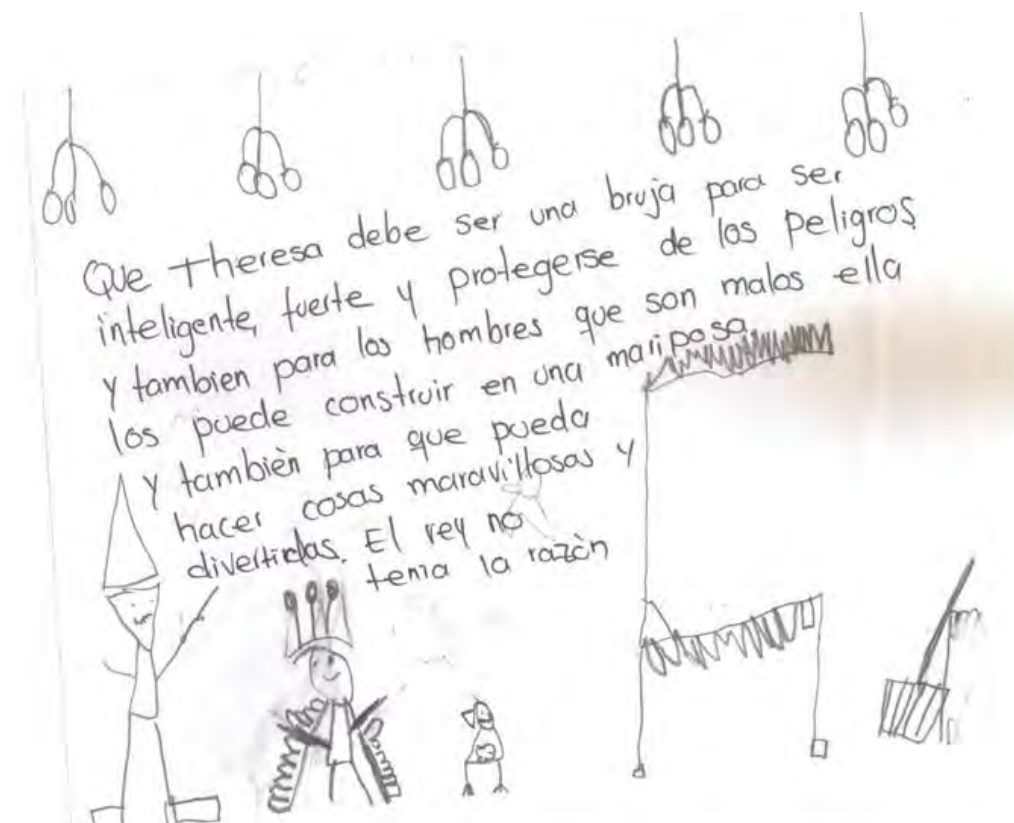 Que Theresa debe ser una bruja para ser
inteligente, fuerte y protegerse de los peligros
y tambien para los hombres que son malos ella
los puede construir en una mariposa
y tambièn para que pueda
hacer cosas maravillosas y
divertidas. El rey no
tenia la razòn